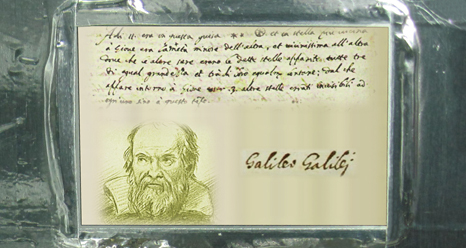 Adi 11 era in questa guisa et la stella più vicina
à Giove era la metà minore dell'altra, et vicinissima all'altra
dove che le altre sere erano le dette stelle apparite tutte tre
di egual grandezza et trà di loro equalm. lontane; dal che
appare intorno à Giove esser 3 altre stelle erranti invisibili ad
ogni uno sino à questo tempo
Galileo Galilej